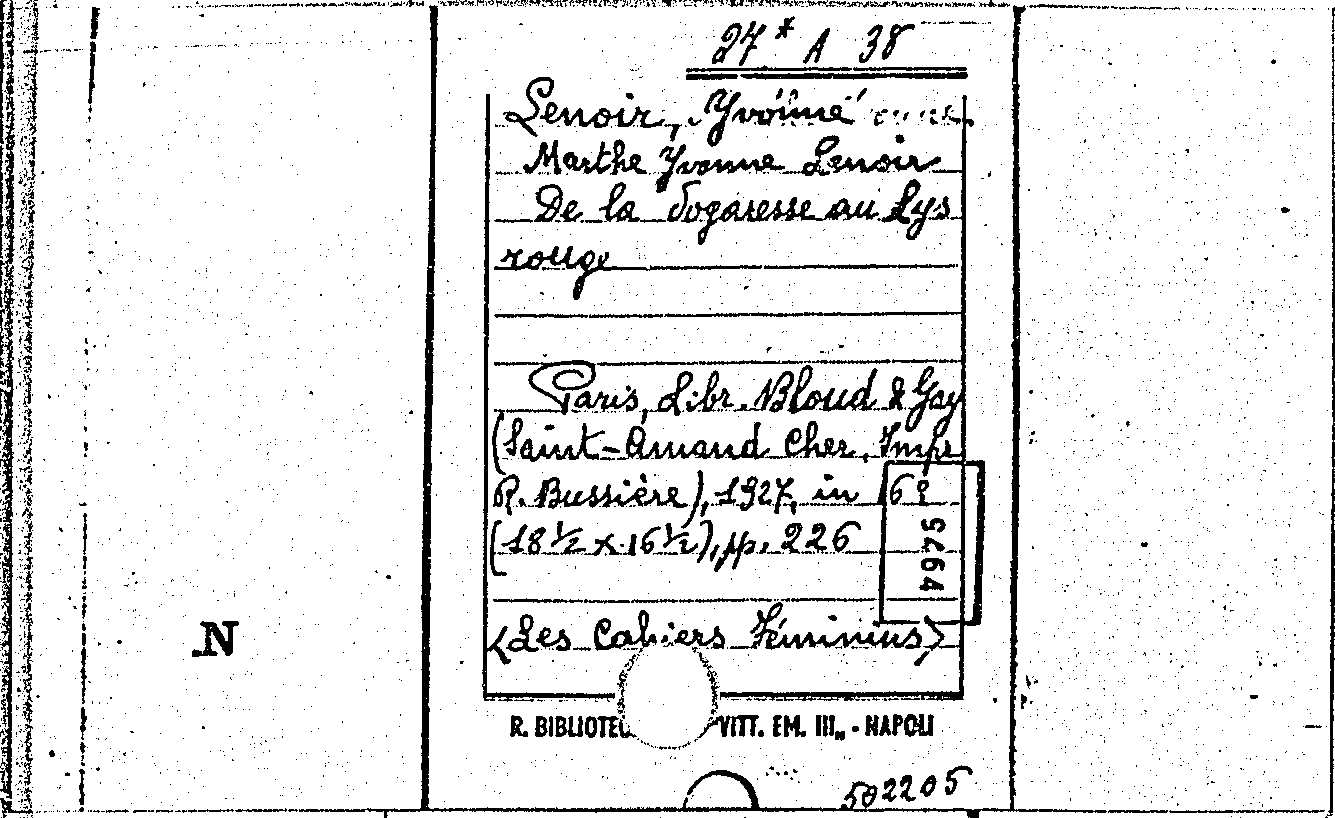 27* A 38
Lenoir, Yvonne
Marthe Yvonne Lenoir
De la Dogaresse au Lys
rouge
Paris, Libr. Bloud & Gay
(Saint-Amand Cher, Impr
R. Bussière), 1927, in 16º
(18 1/2 x 16 1/2), pp. 226
5764
<Les Cahiers Féminins>
N
R. BIBLIOTEC VITT. EM. III„ - NAPOLI
502205